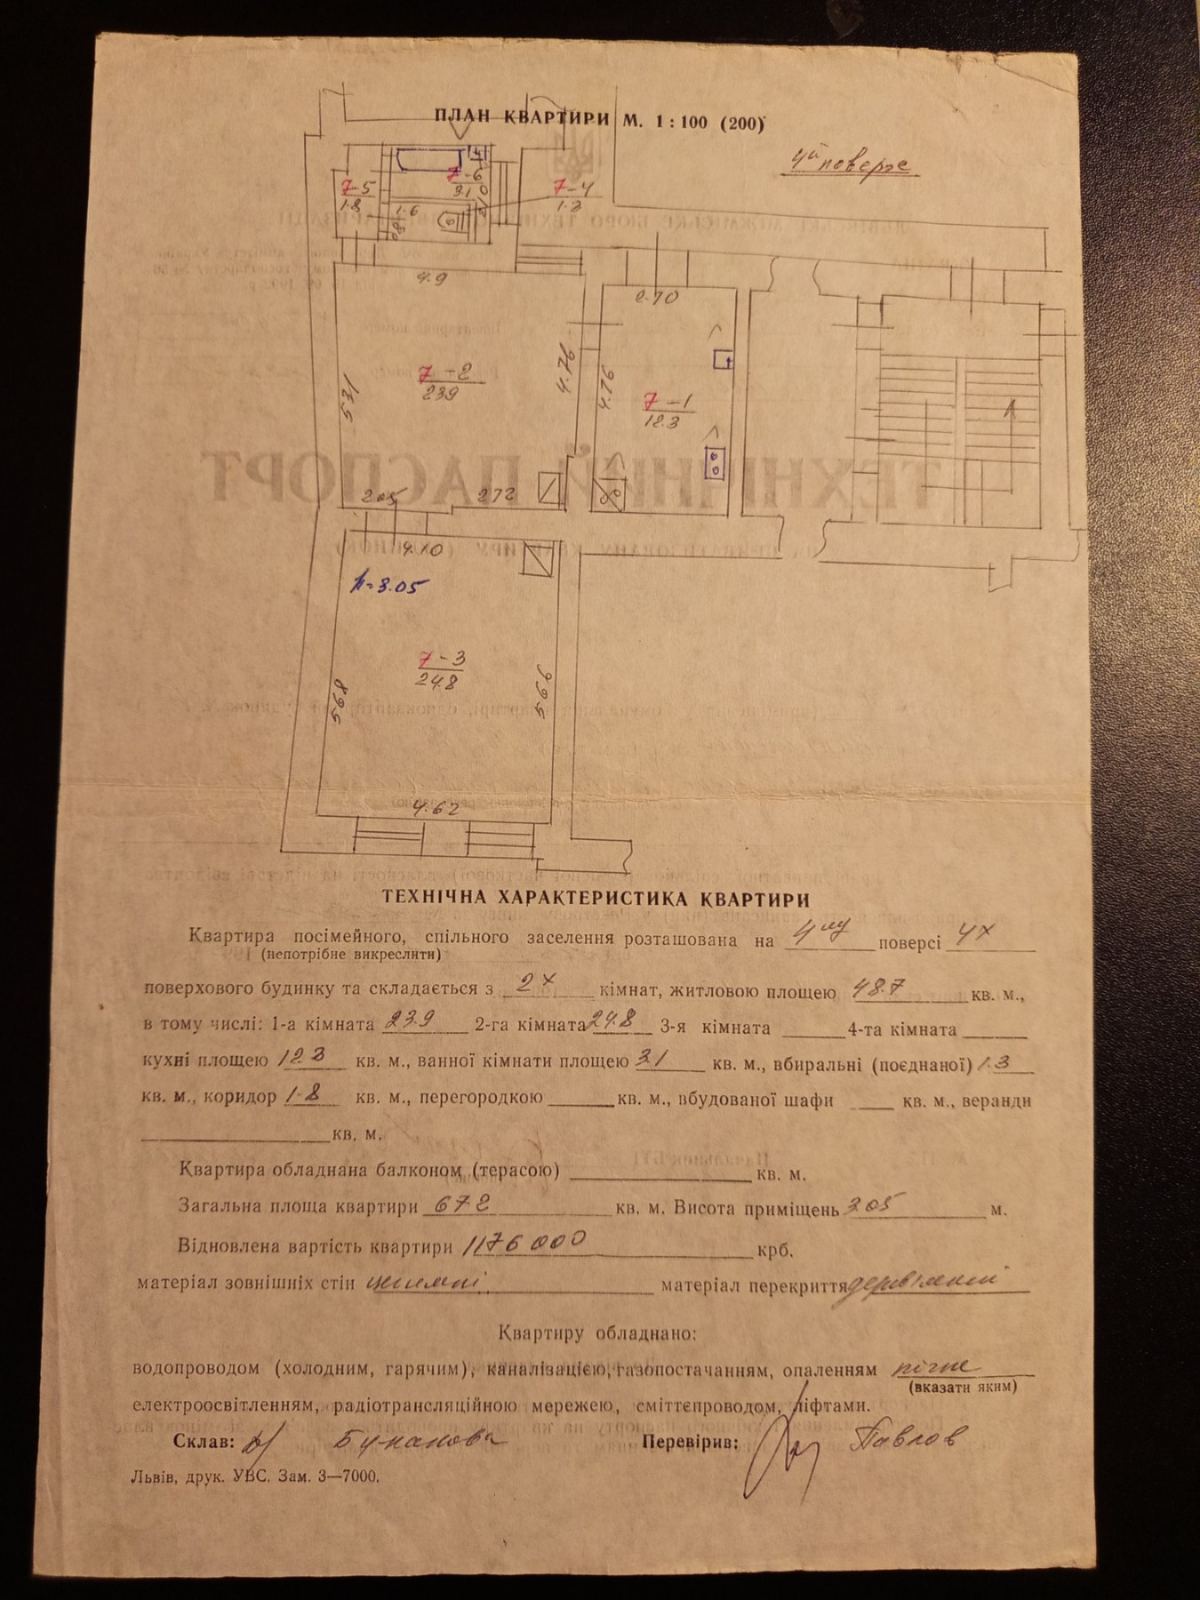 ПЛАН КВАРТИРИ М. 1 : 100 (200)
4й поверх
7-5
1.8
7-6
3.1
7-4
1.3
1.6
4.9
2.70
7-2
23.9
4.76
4.76
7-1
12.3
5.21
2.05
2.72
4.10
h=3.05
7-3
24.8
5.68
5.66
4.62
ТЕХНІЧНА ХАРАКТЕРИСТИКА КВАРТИРИ
Квартира посімейного, спільного заселення розташована на 4му поверсі 4х
(непотрібне викреслити)
поверхового будинку та складається з 2х кімнат, житловою площею 48.7 кв. м.,
в тому числі: 1-а кімната 23.9 2-га кімната 24.8 3-я кімната 4-та кімната
кухні площею 12.3 кв. м., ванної кімнати площею 3.1 кв. м., вбиральні (поєднаної) 1.3
кв. м., коридор 1.8 кв. м., перегородкою кв. м., вбудованої шафи кв. м., веранди
кв. м.
Квартира обладнана балконом (терасою) кв. м.
Загальна площа квартири 67.2 кв. м. Висота приміщень 3.05 м.
Відновлена вартість квартири 1176000 крб.
матеріал зовнішніх стін цегляні матеріал перекриття дерев'яний
Квартиру обладнано:
водопроводом (холодним, гарячим), каналізацією, газопостачанням, опаленням пічне
(вказати яким)
електроосвітленням, радіотрансляційною мережею, сміттєпроводом, ліфтами.
Склав: Перевірив: Павлов
Львів, друк. УВС. Зам. 3—7000.